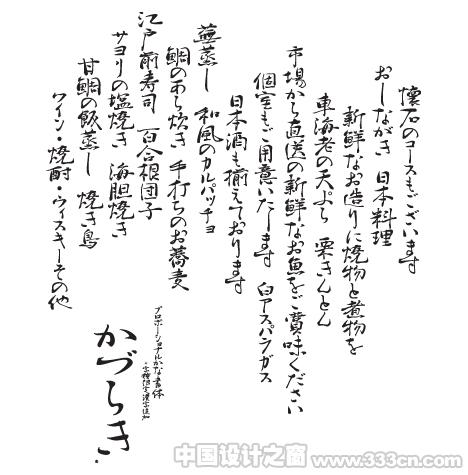 懐石のコースもございます
おしながき 日本料理
新鮮なお造りに焼物と煮物を
車海老の天ぷら 栗きんとん
市場から直送の新鮮なお魚をご賞味ください
個室もご用意いたします 白アスパラガス
日本酒も揃えております
蕪蒸し 和風のカルパッチョ
鯛のあら炊き 手打ちのお蕎麦
江戸前寿司 百合根団子
サヨリの塩焼き 海胆焼き
甘鯛の飯蒸し 焼き鳥
ワイン・焼酎・ウィスキーその他
プロポーショナルかな書体
・字種限定漢字追加
かづらき
中国设计之窗
www.333cn.com